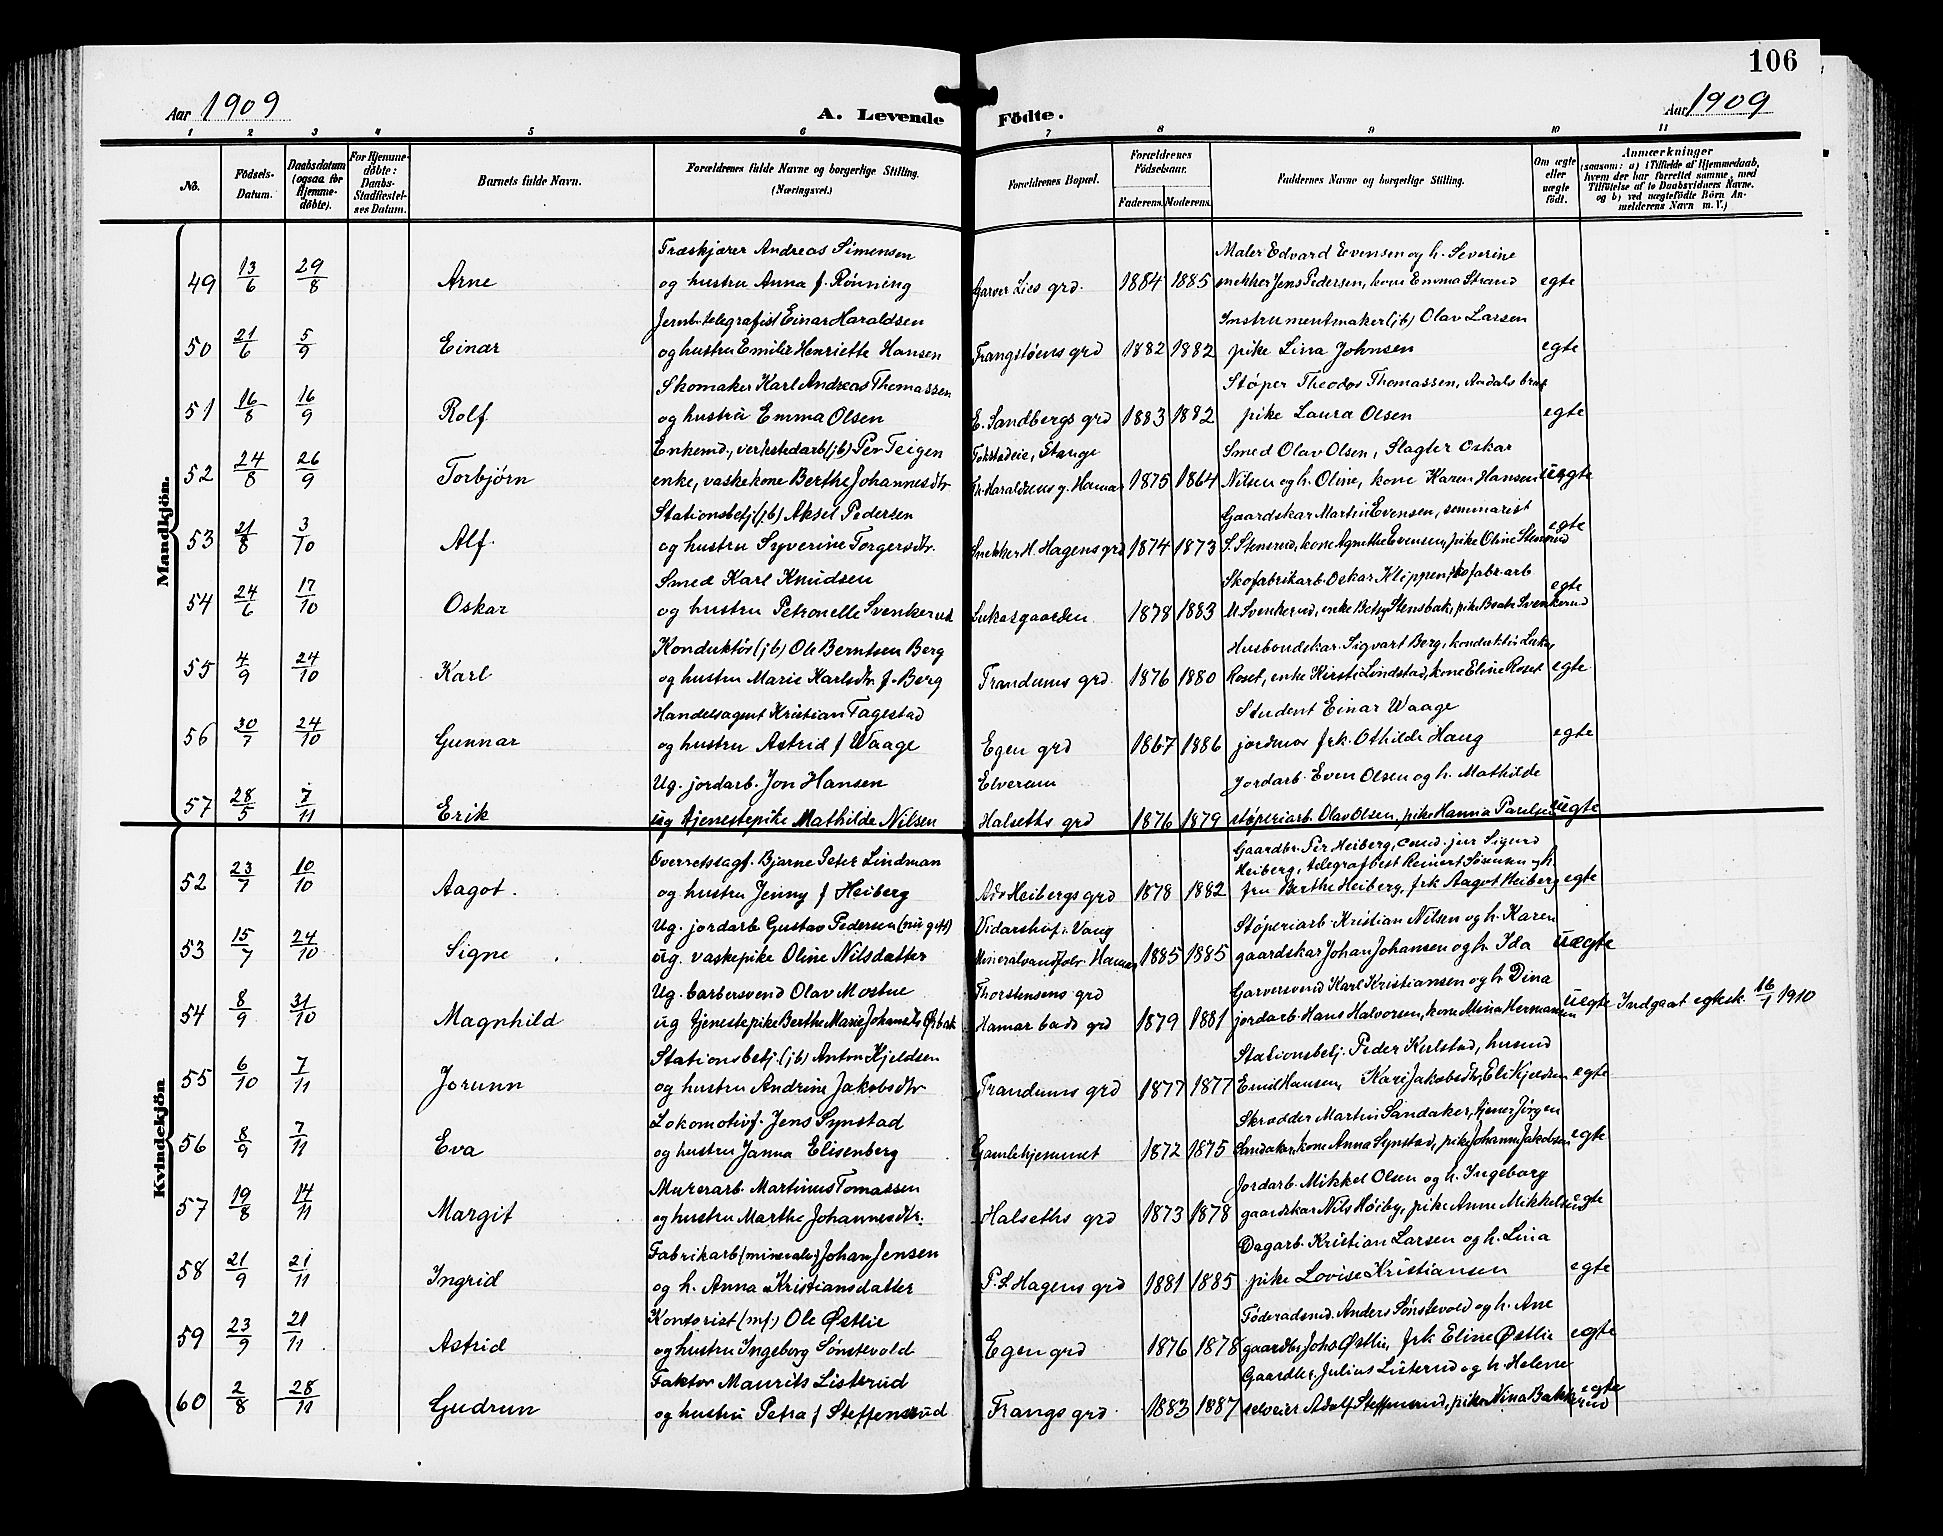 106
Aar 1909
A. Levende Födte.
Aar 1909
1 2 3 4 5 6 7 8 9 10 11
No.
Födsels-Datum.
Daabsdatum (ogsaa for Hjemme-döbte).
For Hjemme-döbte: Daabs-Stadfæstel-ses Datum.
Barnets fulde Navn.
Forældrenes fulde Navne og borgerlige Stilling. (Næringsvei.)
Forældrenes Bopæl.
Forældrenes Födselsaar.
Faderens. Moderens.
Faddernes Navne og borgerlige Stilling.
Om ægte eller uægte födt.
Anmærkninger
(saasom: a) i Tilfælde af Hjemmedaab, hvem der har forrettet samme, med Tilföielse af to Daabsvidners Navne. og b) ved uægtefödte Börn An-melderens Navn m. V.)
Mandkjön.
Træskjærer Andreas Simensen Maler Edvard Evensen og h. Severine
49 13/6 29/8 Arne og hustru Anna f. Rønning Garver Lies grd. 1884 1885 snekker Jens Pedersen, kone Emma Strand egte
Jernb.telegrafist Einar Haraldsen Instrumentmaker (jb) Olav Larsen
50 21/6 5/9 Einar og hustru Emilie Henriette Hansen Frangstøens grd 1882 1882 pike Lina Johnsen egte
Skomaker Karl Andreas Thomassen Støper Theodor Thomassen, Aadals bruk
51 16/8 16/9 Rolf og hustru Emma Olsen E. Sandbergs grd 1883 1882 pike Laura Olsen egte
Enkemd., verkstedarb (jb) Per Teigen Stange Smed Olav Olsen, Slagter Oskar
52 24/8 26/9 Torbjørn enke, vaskekone Berthe Johannesdtr Hamar 1875 1864 Nilsen og h. Oline, kone Karen Hansen uegte
Stationsbetj (jb) Aksel Pedersen Gaardskar Martin Evensen, seminarist
53 21/8 3/10 Alf. og hustru Syverine Torgersdtr. Snekker H. Hagens grd 1874 1873 S. Stensrud, kone Agnethe Evensen, pike Oline Stensrud egte
Smed Karl Knudsen Skofabrikarb. Oskar Klippen, skofabr.arb
54 24/6 17/10 Oskar og hustru Petronelle Svenkerud Lukasgaarden 1878 1883 M Svenkerud, enke Betsy Stensbak, pike Beate Svenkerud egte
Konduktør (jb) Ole Berntsen Berg Husbondskar Sigvart Berg, konduktør
55 4/9 24/10 Karl og hustru Marie Karlsdtr f. Berg Trandums grd. 1876 1880 Roset, enke Kirsti Lindstad, kone Eline Roset egte
Handelsagent Kristian Tagestad Student Einar Waage
56 30/7 24/10 Gunnar og hustru Astrid f Waage Egen grd 1867 1886 jordmor frk. Othilde Haug egte
Ug. jordarb. Jon Hansen Elverum Jordarb. Even Olsen og h. Mathilde
57 28/5 7/11 Erik ug tjenestepike Mathilde Nilsen Halseths grd 1876 1879 støperiarb. Olav Olsen, pike Hanna Paulsen uegte
Kvindekjön
Overretssagf. Bjarne Peter Lindman Gaardbr. Per Heiberg, cand. jur Sigurd
Heiberg, telegrafbest Reinert Sørensen og h.
52 23/7 10/10 Aagot. og hustru Jenny f Heiberg Adv Heibergs grd 1878 1882 fru Berthe Heiberg, frk Aagot Heiberg egte
Ug. jordarb Gustav Pedersen (nu gift) Vidarshof i Vang Støperiarb. Kristian Nilsen og h. Karen
53 15/7 24/10 Signe ug. vaskepike Oline Nilsdatter Mineralvandfabr. Hamar 1885 1885 gaardskar Johan Johansen og h. Ida uegte
Ug. barbersvend Olav Mostue Thorstensens grd Garversvend Karl Kristiansen og h Dina
54 8/9 31/10 Magnhild ug tjenestepike Berthe Marie Johansdtr Hamar bads grd 1879 1881 jordarb. Hans Halvorsen, kone Mina Hermansen uegte Indgaat egtesk. 16/1 1910
Stationsbetj. (jb) Anton Kjeldsen Stationsbetj. Peder Kulstad, husmd
55 6/10 7/11 Jorunn og hustru Andrine Jakobsdtr Trandums grd 1877 1877 Emil Hansen, Kari Jakobsdtr, Eli Kjeldsen egte
Lokomotivf. Jens Synstad Skrædder Martin Sandaker, tjener Jørgen
56 8/9 7/11 Eva og hustru Janna Elisenberg Gamlehjemmet 1872 1875 Sandaker, kone Anna Synstad, pike Johanne Jakobsen egte
Murerarb. Martinus Tomassen Jordarb. Mikkel Olsen og h. Ingeborg
57 19/8 14/11 Margit og hustru Marthe Johannesdtr. Halseths grd 1873 1878 gaardskar Nils Høiby, pike Anne Mikkelsen egte
Fabrikarb (mineralv) Johan Jensen Dagarb. Kristian Larsen og h. Lina
58 21/9 21/11 Ingrid og h. Anna Kristiansdatter P. L. Hagens grd 1881 1885 pike Lovise Kristiansen egte
Kontorist (mf.) Ole Østlie Føderaadsmd. Anders Sønstevold og h. Ane
59 23/9 21/11 Astrid og hustru Ingeborg Sønstevold Egen grd 1876 1878 gaardbr Johs Østlie, frk Eline Østlie egte
Faktor Maurits Listerud Gaardbr. Julius Listerud og h. Helene
60 2/8 28/11 Gudrun og hustru Petra f Steffensrud Frangs grd 1883 1887 selveier Adolf Steffensrud, pike Nina Bakkerud egte